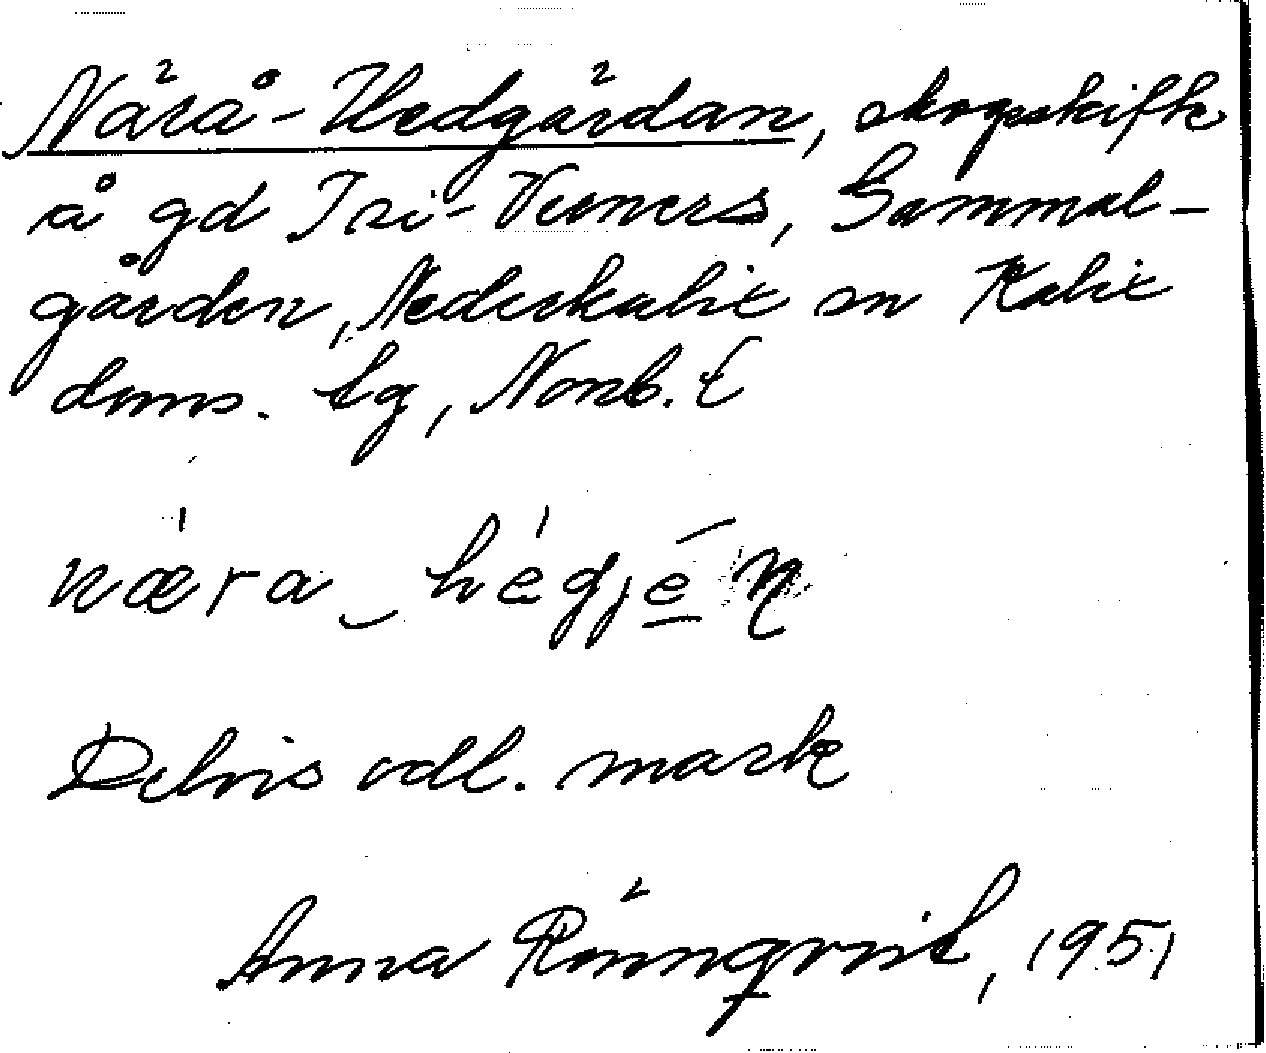 Närå-Hedgärdan, skogsskifte
å gd Isi-Verners, Gammal-
gården, Nederkalix sn Kalix
doms. tg, Norrb. l
næra hégjén
Delvis odl. mark
Anna Rönnqvist, 1951